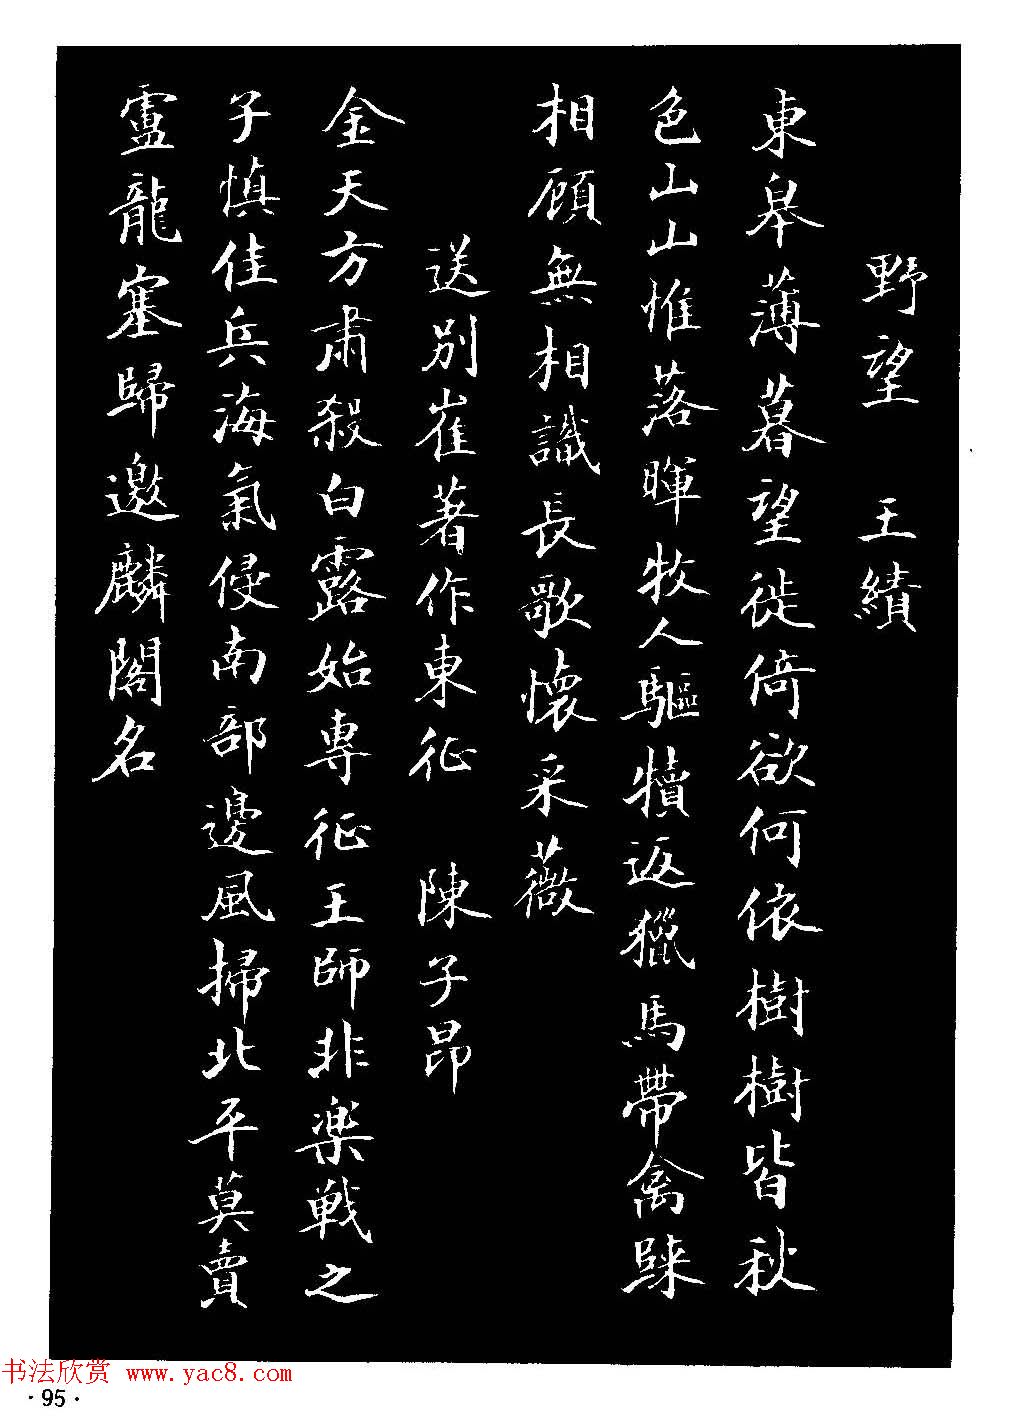 野望 王績
東皋薄暮望徙倚欲何依樹樹皆秋
色山山惟落暉牧人驅犢返獵馬帶禽歸
相顧無相識長歌懷采薇
送別崔著作東征 陳子昂
金天方肅殺白露始專征王師非樂戰之
子慎佳兵海氣侵南部邊風掃北平莫賣
盧龍塞歸邀麟閣名
书法欣赏 www.yac8.com
·95·